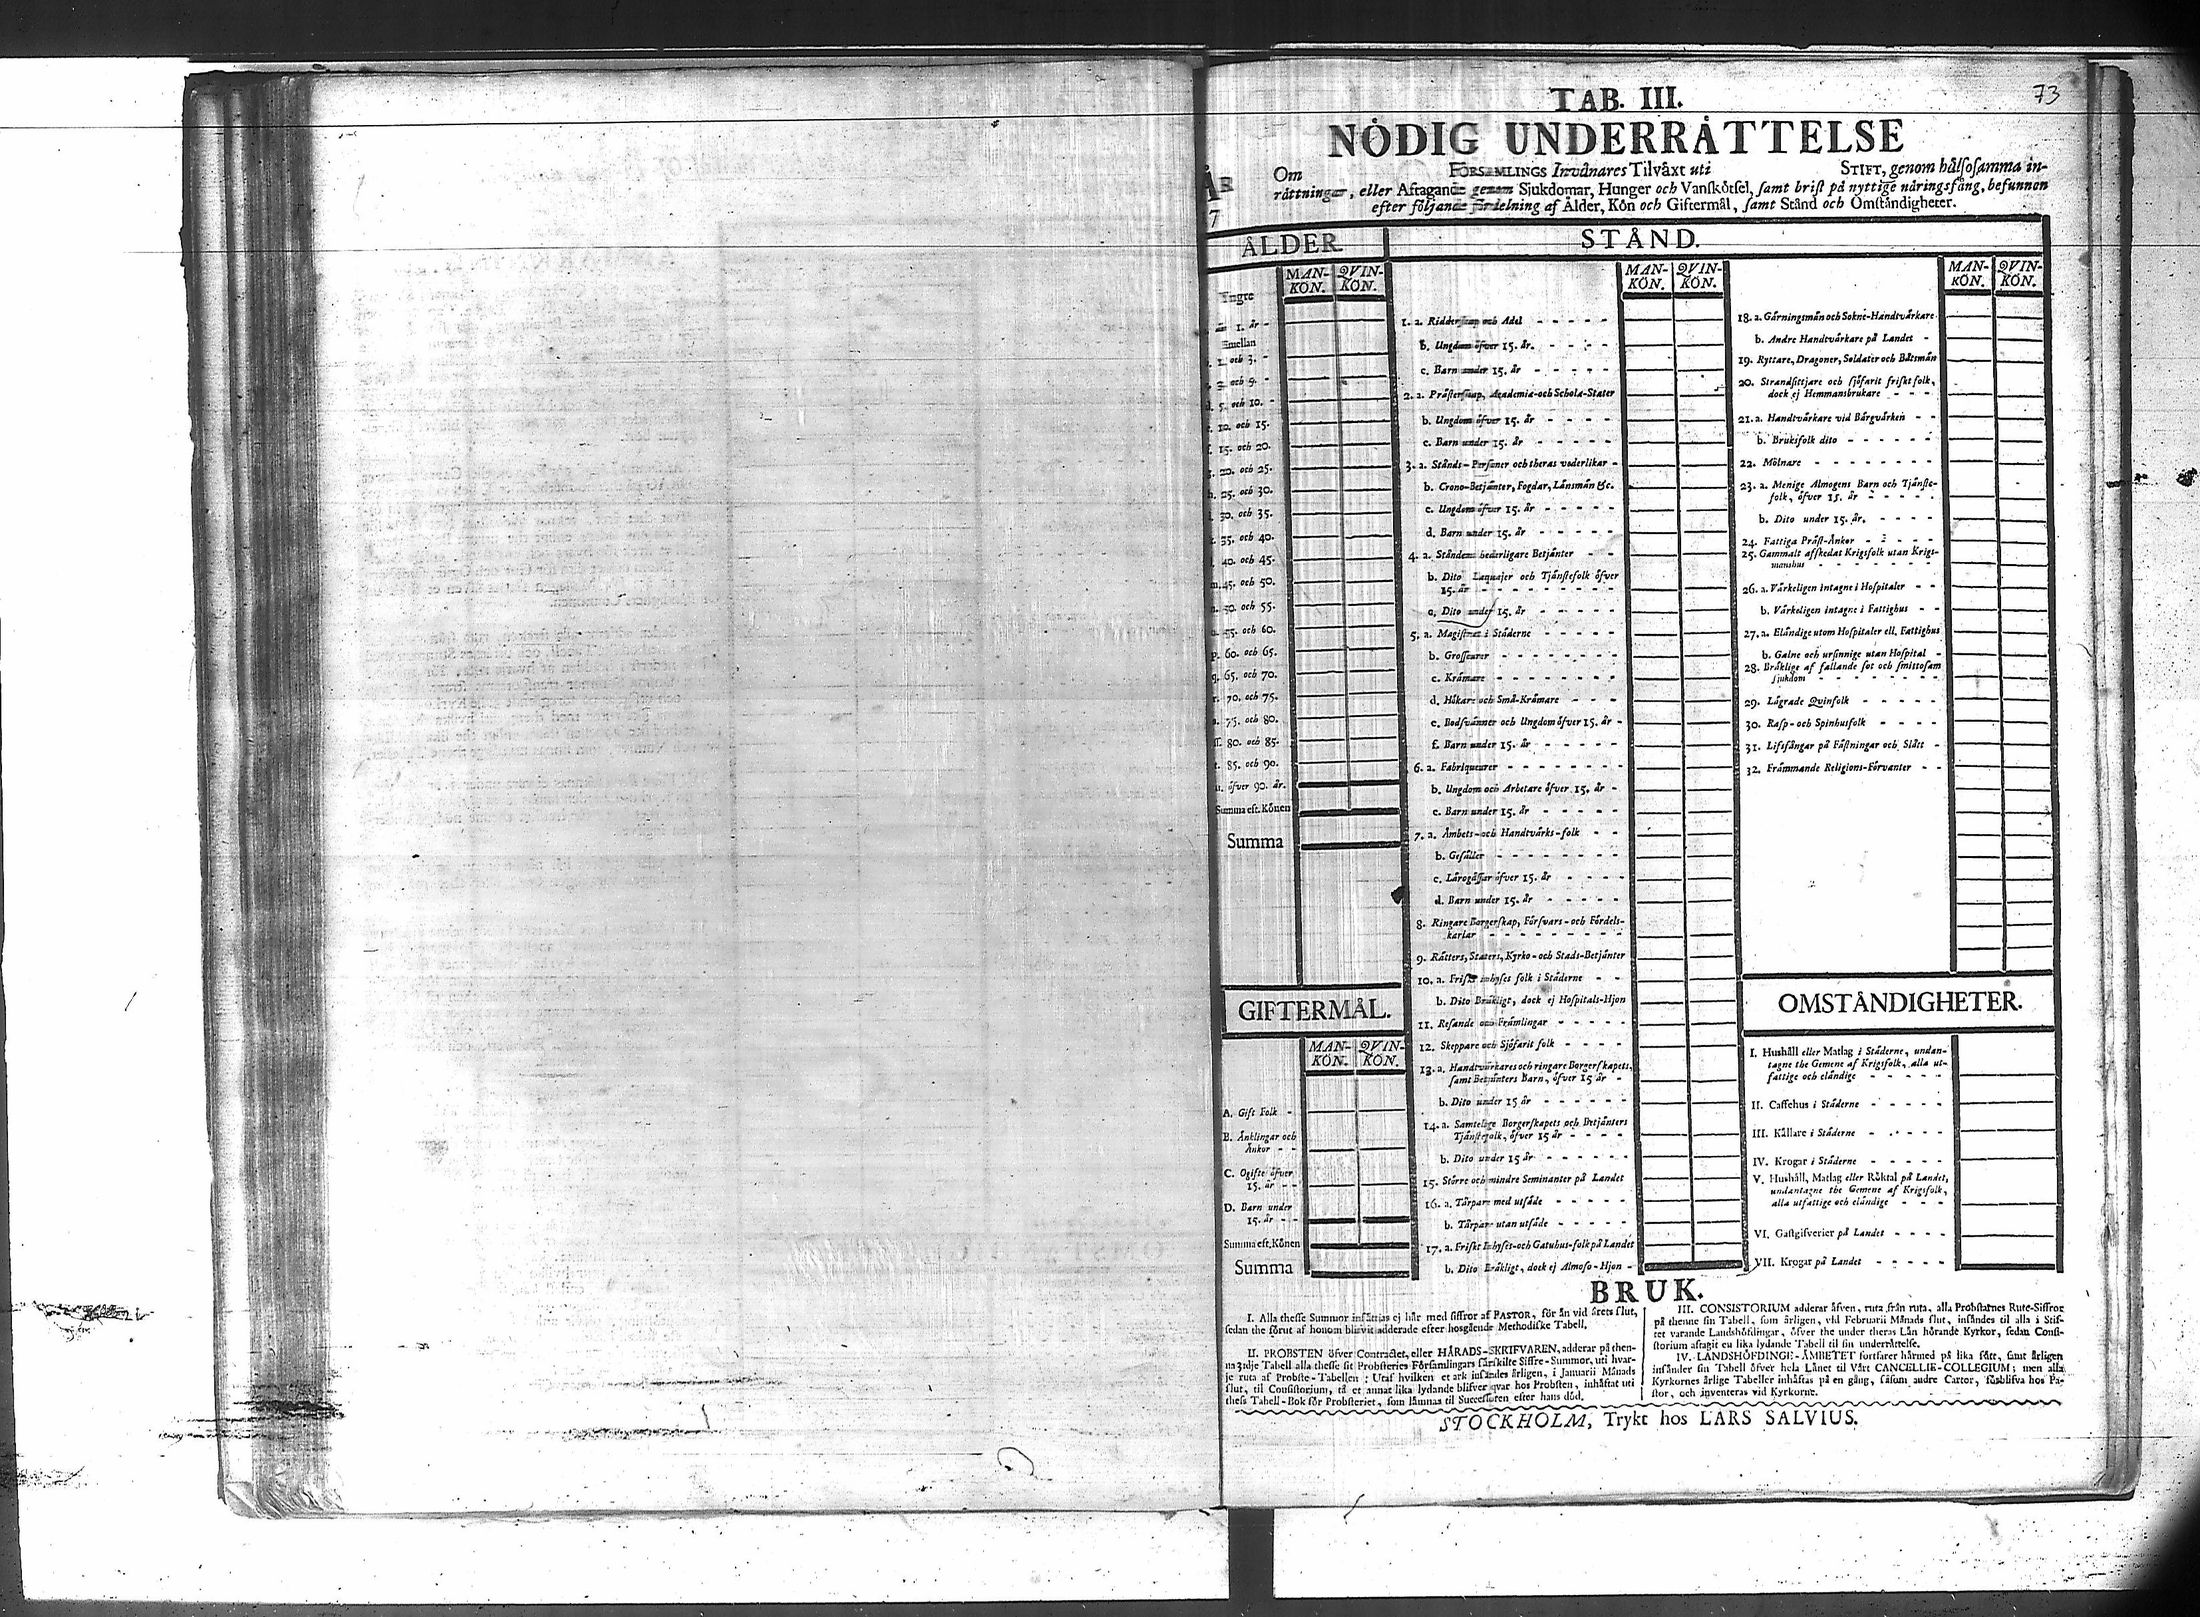 73
TAB. III.
NÖDIG UNDERRÅTTELSE
År
7
Om FÖRSAMLINGS Invånares Tilvåxt uti STIFT, genom hålsosamma in-
råttningar, eller Aftagande genom Sjukdomar, Hunger och Vanskötsel, samt brist på nyttige nåringsfång, befunnen
efter följande fördelning af Ålder, Kön och Giftermål, samt Stånd och Omståndigheter.
ÅLDER.
MAN-KÖN. QVIN-KÖN.
Yngre
än 1. år -
Emellan
1. och 3. -
3. och 5. -
d. 5. och 10. -
e. 10. och 15.
f. 15. och 20.
g. 20. och 25.
h. 25. och 30.
i. 30. och 35.
k. 35. och 40.
l. 40. och 45.
m. 45. och 50.
n. 50. och 55.
o. 55. och 60.
p. 60. och 65.
q. 65. och 70.
r. 70. och 75.
s. 75. och 80.
ss. 80. och 85.
t. 85. och 90.
u. öfver 90. år.
Summa eft. Könen
Summa
GIFTERMÅL.
MAN-KÖN. QVIN-KÖN.
A. Gift Folk -
B. Ånklingar och
Ånkor - -
C. Ogifte öfver
15. år - -
D. Barn under
15. år - -
Summa eft. Könen
Summa
STÅND.
MAN-KÖN. QVIN-KÖN.
1. a. Ridderskap och Adel - - - - -
b. Ungdom öfver 15. år. - - - -
c. Barn under 15. år - - - - -
2. a. Pråsterskap, Academia- och Schola-Stater
b. Ungdom öfver 15. år - - - -
c. Barn under 15. år - - - - -
3. a. Stånds-Personer och theras vederlikar -
b. Crono-Betjånter, Fogdar, Lånsmån &c.
c. Ungdom öfver 15. år - - - -
d. Barn under 15. år - - - - -
4. a. Ståndens hederligare Betjånter - -
b. Dito Laquajer och Tjånstefolk öfver
15. år - - - - - - - -
c. Dito under 15. år - - - - -
5. a. Magistrat i Ståderne - - - - -
b. Grosseurer - - - - - - -
c. Kråmare - - - - - - -
d. Hökare och Små-Kråmare - - -
e. Bodsvånner och Ungdom öfver 15. år -
f. Barn under 15. år - - - - -
6. a. Fabriqueurer - - - - - - -
b. Ungdom och Arbetare öfver 15. år -
c. Barn under 15. år - - - - -
7. a. Åmbets- och Handtvårks-folk - -
b. Gesåller - - - - - - -
c. Lårogåssar öfver 15. år - - - -
d. Barn under 15. år - - - - -
8. Ringare Borgerskap, Försvars- och Fördels-
karlar - - - - - - - -
9. Råtters, Staters, Kyrko- och Stads-Betjånter
10. a. Friskt inhyses folk i Ståderne - -
b. Dito Bråkligt, dock ej Hospitals-Hjon
11. Resande och Fråmlingar - - - -
12. Skeppare och Sjöfarit folk - - - -
13. a. Handtvårkares och ringare Borgerskapets,
samt Betjånters Barn, öfver 15 år -
b. Dito under 15 år - - - - -
14. a. Samtelige Borgerskapets och Betjånters
Tjånstefolk, öfver 15 år - - - -
b. Dito under 15 år - - - - -
15. Större och mindre Seminanter på Landet
16. a. Tårpare med utsåde - - - - -
b. Tårpare utan utsåde - - - - -
17. a. Friskt Inhyses- och Gatuhus-folk på Landet
b. Dito Bråkligt, dock ej Almoso-Hjon -
MAN-KÖN. QVIN-KÖN.
18. a. Gårningsmån och Sokne-Handtvårkare
b. Andre Handtvårkare på Landet -
19. Ryttare, Dragoner, Soldater och Båtsmån
20. Strandsittjare och sjöfarit friskt folk,
dock ej Hemmansbrukare - - -
21. a. Handtvårkare vid Bårgvårken - -
b. Bruksfolk dito - - - - -
22. Mölnare - - - - - - -
23. a. Menige Almogens Barn och Tjånste-
folk, öfver 15. år - - - -
b. Dito under 15. år. - - - -
24. Fattiga Pråst-Ånkor - - - -
25. Gammalt afskedat Krigsfolk utan Krigs-
manshus - - - - - - -
26. a. Vårkeligen intagne i Hospitaler - -
b. Vårkeligen intagne i Fattighus - -
27. a. Elåndige utom Hospitaler ell. Fattighus
b. Galne och ursinnige utan Hospital -
28. Bråklige af fallande sot och smittosam
sjukdom - - - - - - -
29. Lågrade Qvinfolk - - - - -
30. Rasp- och Spinhusfolk - - - -
31. Lifsfångar på Fåstningar och Slått -
32. Fråmmande Religions-Förvanter - -
OMSTÅNDIGHETER.
I. Hushåll eller Matlag i Ståderne, undan-
tagne the Gemene af Krigsfolk, alla ut-
fattige och elåndige - - - - -
II. Caffehus i Ståderne - - - - -
III. Kållare i Ståderne - - - - -
IV. Krogar i Ståderne - - - - -
V. Hushåll, Matlag eller Röktal på Landet,
undantagne the Gemene af Krigsfolk,
alla utfattige och elåndige - - -
VI. Gåstgifverier på Landet - - - -
VII. Krogar på Landet - - - - -
BRUK.
I. Alla thesse Summor insåttias ej hår med siffror af PASTOR, för ån vid årets slut,
sedan the förut af honom blifvit adderade efter hosgående Methodiske Tabell.
II. PROBSTEN öfver Contractet, eller HÅRADS-SKRIFVAREN, adderar på then-
na 3:dje Tabell alla thesse sit Probsteries Församlingars sårskilte Siffre-Summor, uti hvar-
je ruta af Probste-Tabellen: Utaf hvilken et ark insåndes årligen, i Januarii Månads
slut, til Consistorium, tå et annat lika lydande blifver qvar hos Probsten, inhåftat uti
thess Tabell-Bok för Probsteriet, som låmnas til Successoren efter hans död.
III. CONSISTORIUM adderar åfven, ruta från ruta, alla Probstarnes Rute-Siffror
på thenne sin Tabell, som årligen, vid Februarii Månads slut, insåndes til alla i Stif-
tet varande Landshöfdingar, öfver the under theras Lån hörande Kyrkor, sedan Consi-
storium aftagit en lika lydande Tabell til sin underråttelse.
IV. LANDSHÖFDINGE-ÅMBETET fortfarer hårmed på lika sått, samt årligen
insånder sin Tabell öfver hela Lånet til Vårt CANCELLIE-COLLEGIUM; men alla
Kyrkornes årlige Tabeller inhåftas på en gång, såsom andre Cartor, förblifva hos Pa-
stor, och inventeras vid Kyrkorne.
STOCKHOLM, Trykt hos LARS SALVIUS.